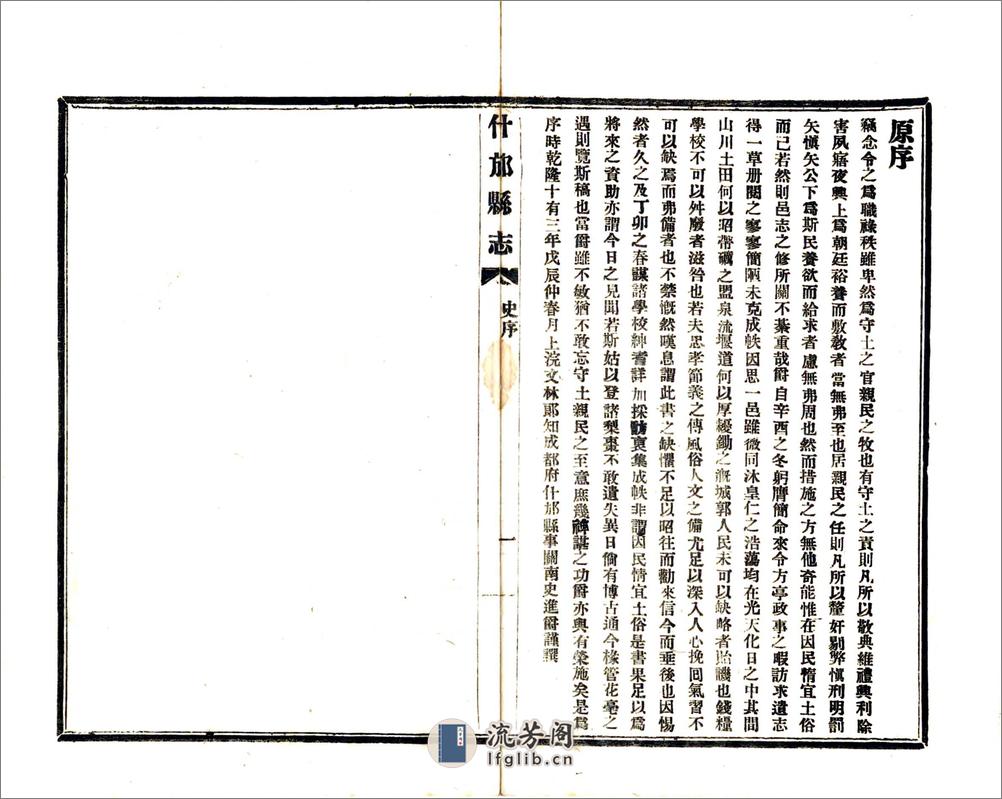 原序
竊念令之爲職祿秩雖卑然爲守土之官親民之牧也有守土之責則凡所以敬典維禮興利除
害夙寤夜興上爲朝廷裕養而敷敎者當無弗至也居親民之任則凡所以釐奸剔弊愼刑明罰
矢愼矢公下爲斯民養欲而給求者慮無弗周也然而措施之方無他奇能惟在因民情宜土俗
而已若然則邑志之修所關不綦重哉爵自辛酉之冬躬膺簡命來令方亭政事之暇訪求遺志
得一草册閱之寥寥簡陋未克成帙因思一邑雖微同沐皇仁之浩蕩均在光天化日之中其間
山川土田何以昭帶礪之盟泉流堰道何以厚耰鋤之漑城郭人民未可以缺略者貽譏也錢糧
學校不可以舛廢者滋咎也若夫忠孝節義之傳風俗人文之備尤足以深入人心挽回氣習不
可以缺焉而弗備者也不禁慨然嘆息謂此書之缺懼不足以昭往而勸來信今而垂後也因惕
然者久之及丁卯之春謀諸學校紳耆詳加採訪裒集成帙非謂因民情宜土俗是書果足以爲
將來之資助亦謂今日之見聞若斯姑以登諸梨棗不敢遺失異日倘有博古通今椽管花毫之
遇則覽斯稿也當爵雖不敏猶不敢忘守土親民之至意庶幾裨諶之功爵亦與有榮施矣是爲
序時乾隆十有三年戊辰仲春月上浣文林郞知成都府什邡縣事關南史進爵謹撰
什邡縣志
史序
一
流芳阁
lfglib.cn